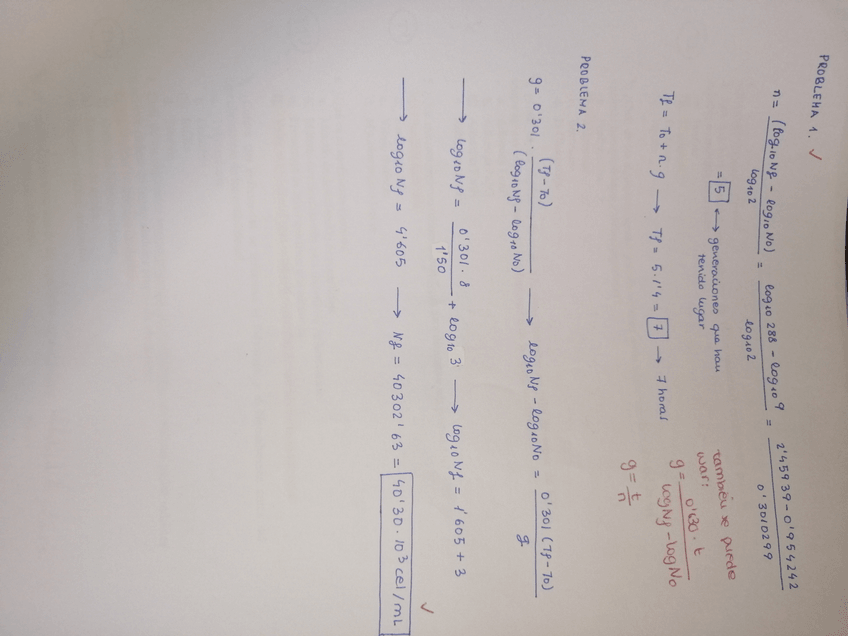 PROBLEMA 1. ✓
n = (log10 Nf - log10 No) / log10 2 = log10 288 - log10 9 / log10 2 = 2'45939 - 0'954242 / 0'3010299
= 5 ↔ generaciones que han
tenido lugar
también se puede
usar:
g = 0'30 · t / log Nf - log No
g = t / n
Tf = To + n.g → Tf = 5.1'4 = 7 → 7 horas
PROBLEMA 2.
g = 0'301 · (Tf - To) / (log10 Nf - log10 No) → log10 Nf - log10 No = 0'301 (Tf - To) / g
→ log10 Nf = 0'301 · 8 / 1'50 + log10 3 → log10 Nf = 1'605 + 3
→ log10 Nf = 4'605 → Nf = 40302'63 = 40'30 · 10³ cel/mL ✓